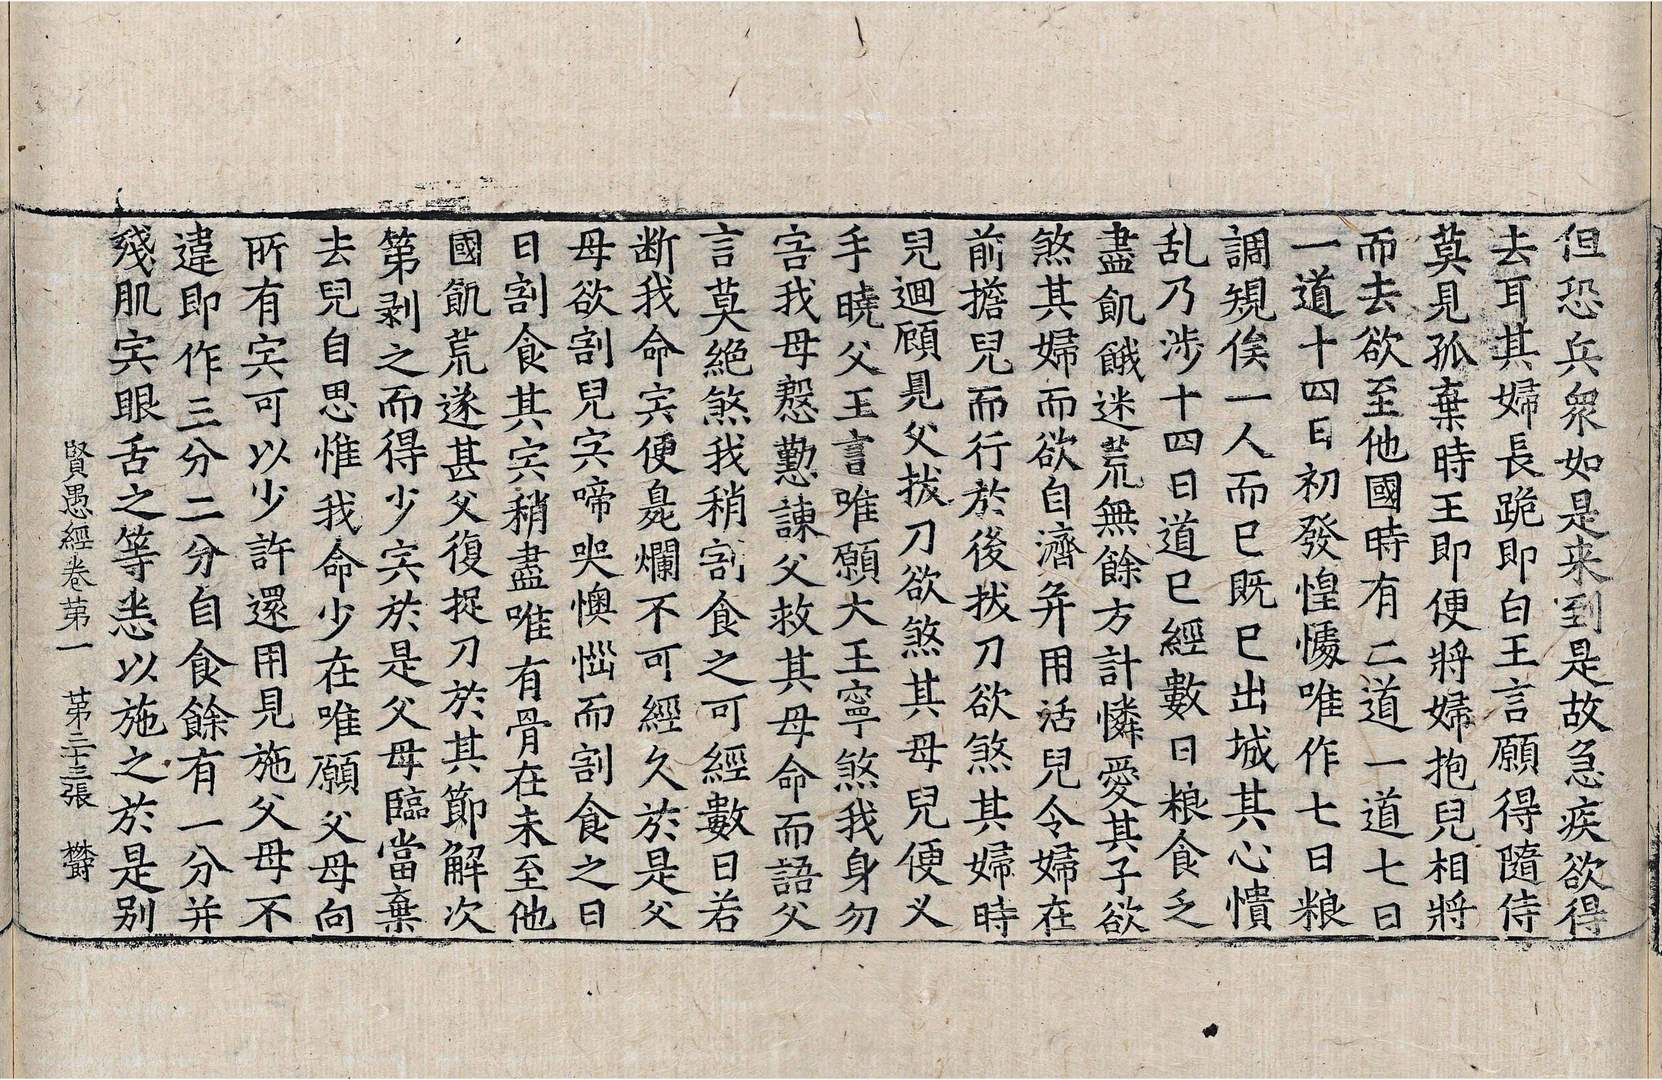 但恐兵衆如是来到是故急疾欲得
去耳其婦長跪即白王言願得隨侍
莫見孤棄時王即便將婦抱兒相將
而去欲至他國時有二道一道七日
一道十四日初發惶懅唯作七日粮
調規俟一人而已既已出城其心憒
乱乃涉十四日道已經數日粮食乏
盡飢餓迷荒無餘方計憐愛其子欲
煞其婦而欲自濟并用活兒令婦在
前擔兒而行於後拔刀欲煞其婦時
兒迴顧見父拔刀欲煞其母兒便叉
手曉父王言唯願大王寧煞我身勿
害我母慇懃諫父救其母命而語父
言莫絕煞我稍割食之可經數日若
断我命宍便臰爛不可經久於是父
母欲割兒宍啼哭懊惱而割食之日
日割食其宍稍盡唯有骨在未至他
國飢荒遂甚父復捉刀於其節解次
第剥之而得少宍於是父母臨當棄
去兒自思惟我命少在唯願父母向
所有宍可以少許還用見施父母不
違即作三分二分自食餘有一分并
殘肌宍眼舌之等悉以施之於是别
賢愚經卷苐一 苐二十三張 欝